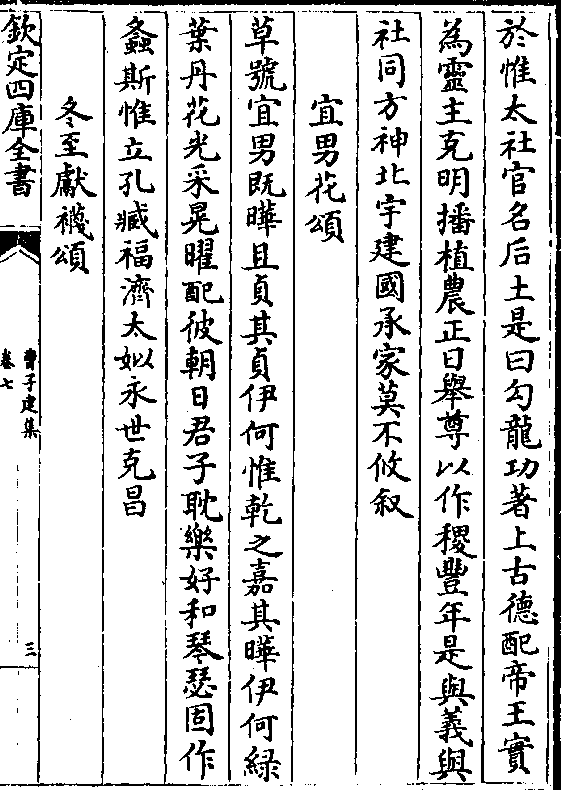 於惟太社官名后土是曰勾龍功著上古德配帝王實
為靈主克明播植農正曰舉尊以作稷豐年是與義與
社同方神北宇建國承家莫不攸叙
宜男花頌
草號宜男既曄且貞其貞伊何惟乾之嘉其曄伊何綠
葉丹花光采晃曜配彼朝日君子耽樂好和琴瑟固作
螽斯惟立孔臧福濟太姒永世克昌
冬至獻襪頌
欽定四庫全書
曹子建集
卷七
三